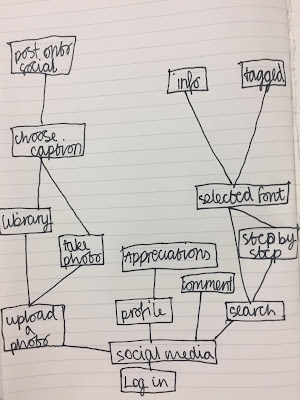 post onto
social
info
tagged
choose
caption
selected font
library
take
photo
step by
step
Appreciations
comment
upload
a
photo
profile
search
social media
Log in